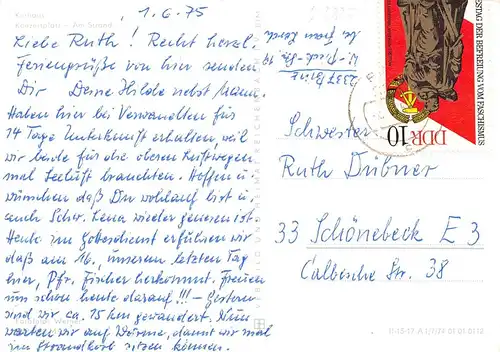 1.6.75
Liebe Ruth! Recht herzl.
Feriengrüße von hier senden
Dir Deine Hilde nebst Mann.
Haben hier bei Verwandten für
14 Tage Unterkunft erhalten, weil
wir beide für die oberen Luftwege
mal Seeluft brauchten. Hoffen u.
wünschen daß Du wohlauf bist u.
auch Schw. Lena wieder genesen ist.
Heute im Gottesdienst erfuhren wir
daß am 16., unserem letzten Tag
hier, Pfr. Fischer herkommt. Freuen
uns schon heute darauf!!! - Gestern
sind wir ca. 15 km gewandert. Nun
warten wir auf Wärme, damit wir mal
im Strandkorb sitzen können.
2337 Binz
DDR 10
STAG DER BEFREIUNG VOM FASCHISMUS
Schwester
Ruth Dübner
33 Schönebeck E 3
Calbische Str. 38